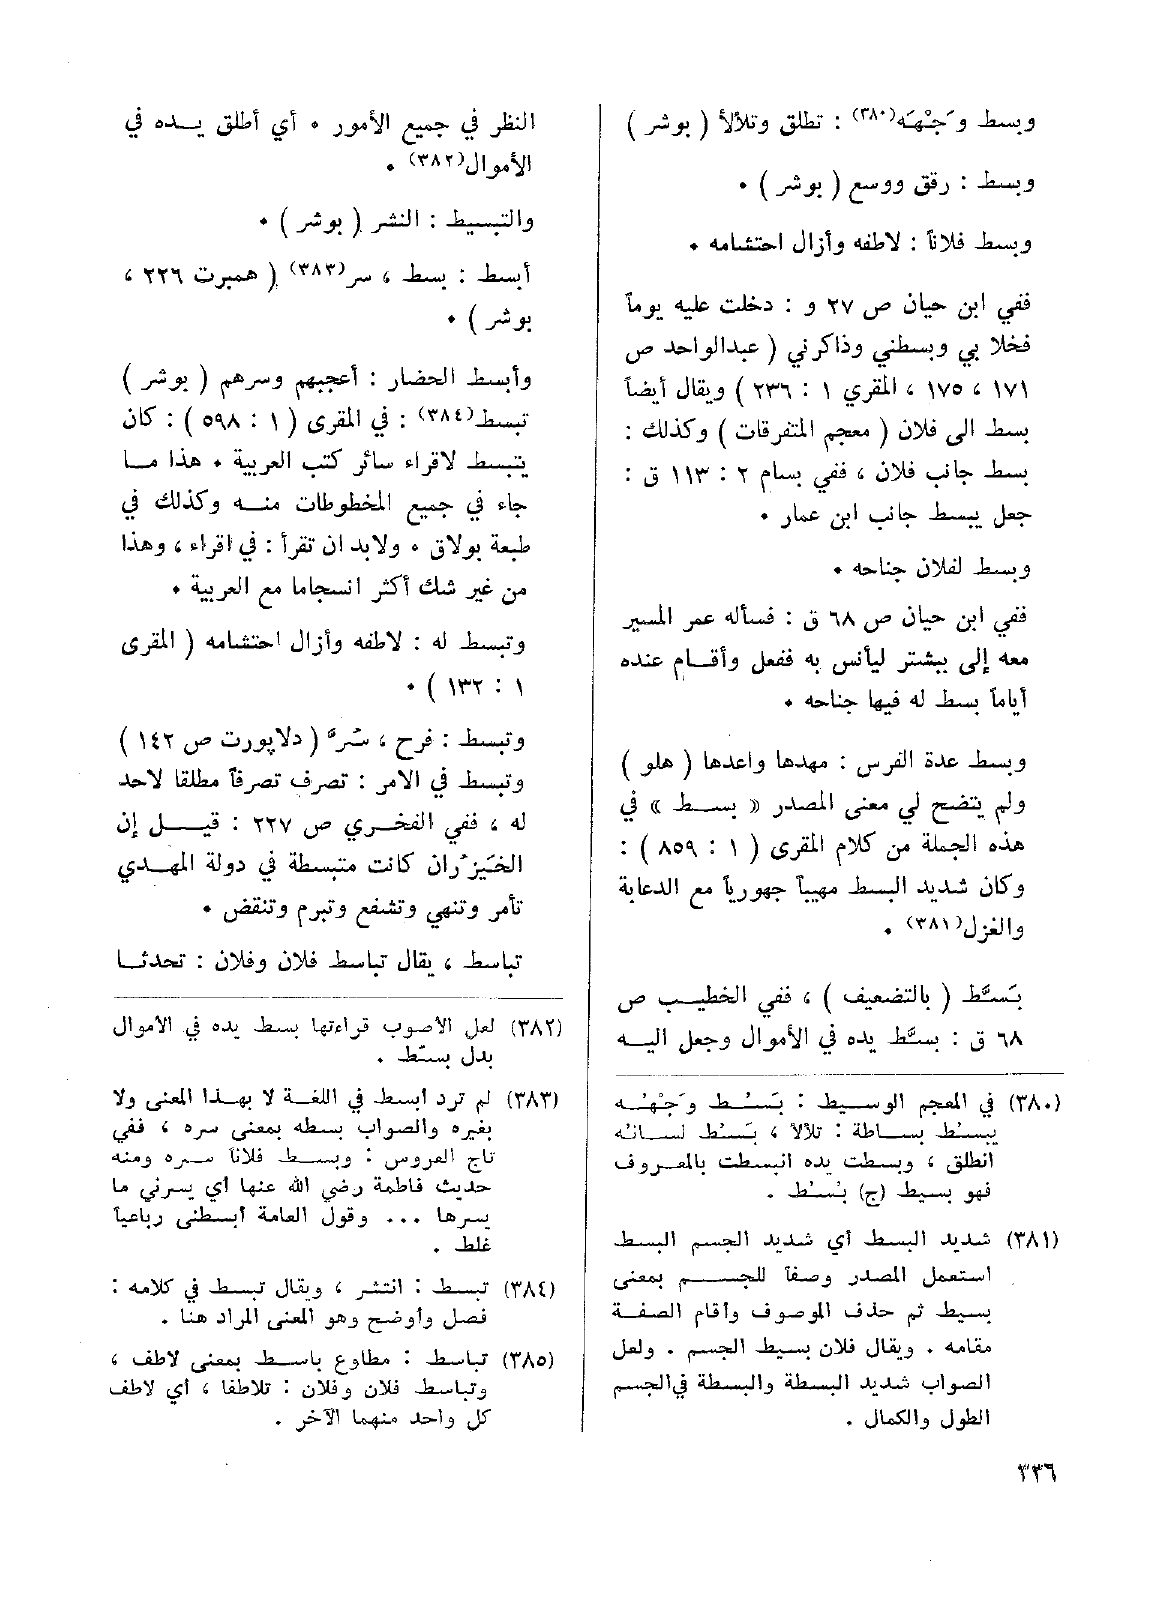 وبسط وَجْهَه(٣٨٠) : تطلق وتلألأ ( بوشر )
وبسط : رقق ووسع ( بوشر ) ٠
وبسط فلاناً : لاطفه وأزال احتشامه ٠
ففي ابن حيان ص ٢٧ و : دخلت عليه يوماً
فخلا بي وبسطني وذاكرني ( عبدالواحد ص
١٧١ ، ١٧٥ ، المقري ١ : ٢٣٦ ) ويقال أيضاً
بسط الى فلان ( معجم المتفرقات ) وكذلك :
بسط جانب فلان ، ففي بسام ٢ : ١١٣ ق :
جعل يبسط جانب ابن عمار ٠
وبسط لفلان جناحه ٠
ففي ابن حيان ص ٦٨ ق : فسأله عمر المسير
معه إلى ببشتر ليأنس به ففعل وأقـام عنده
أياماً بسط له فيها جناحه ٠
وبسط عدة الفرس : مهدها واعدها ( هلو )
ولم يتضح لي معنى المصدر « بســط » في
هذه الجملة من كلام المقرى ( ١ : ٨٥٩ ) :
وكان شديد البسط مهيباً جهورياً مع الدعابة
والغزل(٣٨١) ٠
بَسَّط ( بالتضعيف ) ، ففي الخطيـب ص
٦٨ ق : بسَّط يده في الأموال وجعل اليـه
(٣٨٠) في المعجم الوسـيط : بَسُـط وَجْهُـه
يبسُـط بسـاطة : تلألأ ، بَسُط لسـانه
انطلق ، وبسطت يده انبسطت بالمعـروف
فهو بسيط (ج) بُسُط .
(٣٨١) شديد البسط أي شديد الجسم البسط
استعمل المصدر وصفاً للجـــم بمعنى
بسيط ثم حذف الموصوف وأقام الصفـة
مقامه . ويقال فلان بسيط الجسم . ولعل
الصواب شديد البسطة والبسطة في الجسم
الطول والكمال .
النظر في جميع الأمور ٠ أي أطلق يــده في
الأموال(٣٨٢) ٠
والتبسيط : النشر ( بوشر ) ٠
أبسط : بسط ، سر(٣٨٣) ( همبرت ٢٢٦ ،
بوشر ) ٠
وأبسط الحضار : أعجبهم وسرهم ( بوشر )
تبسط(٣٨٤) : في المقرى ( ١ : ٥٩٨ ) : كان
يتبسط لاقراء سائر كتب العربية ٠ هذا مـا
جاء في جميع المخطوطات منــه وكذلك في
طبعة بولاق ٠ ولابد ان تقرأ : في اقراء ، وهذا
من غير شك أكثر انسجاما مع العربية ٠
وتبسط له : لاطفه وأزال احتشامه ( المقرى
١ : ١٣٢ ) ٠
وتبسط : فرح ، سُرَّ ( دلاپورت ص ١٤٢ )
وتبسط في الامر : تصرف تصرفاً مطلقا لاحد
له ، ففي الفخـري ص ٢٢٧ : قيــل إن
الخَيْزُران كانت متبسطة في دولة المهـدي
تأمر وتنهي وتشفع وتبرم وتنقض ٠
تباسط ، يقال تباسط فلان وفلان : تحدثـا
(٣٨٢) لعل الاصوب قراءتها بسط يده في الاموال
بدل بسّط .
(٣٨٣) لم ترد أبسط في اللغـة لا بهـذا المعنى ولا
بغيره والصواب بسطه بمعنى سره ، ففي
تاج العروس : وبسـط فلاناً سـره ومنه
حديث فاطمة رضي الله عنها أي يسرني ما
يسرها ... وقول العامة أبسطنى رباعياً
غلط .
(٣٨٤) تبسـط : انتشر ، ويقال تبسط في كلامه :
فصل وأوضح وهو المعنى المراد هنا .
(٣٨٥) تباسط : مطاوع باسـط بمعنى لاطف ،
وتباسط فلان وفلان : تلاطفا ، أي لاطف
كل واحد منهما الآخر .
٣٣٦